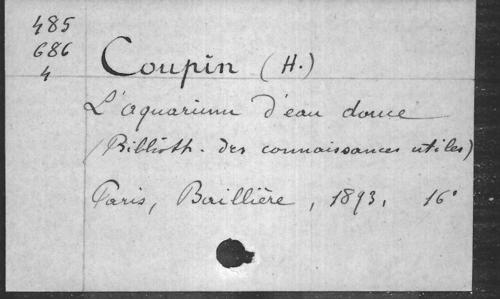 485
686
4
Coupin (H.)
L'aquarium d'eau douce
(Biblioth. des connaissances utiles)
Paris, Baillière, 1893, 16°